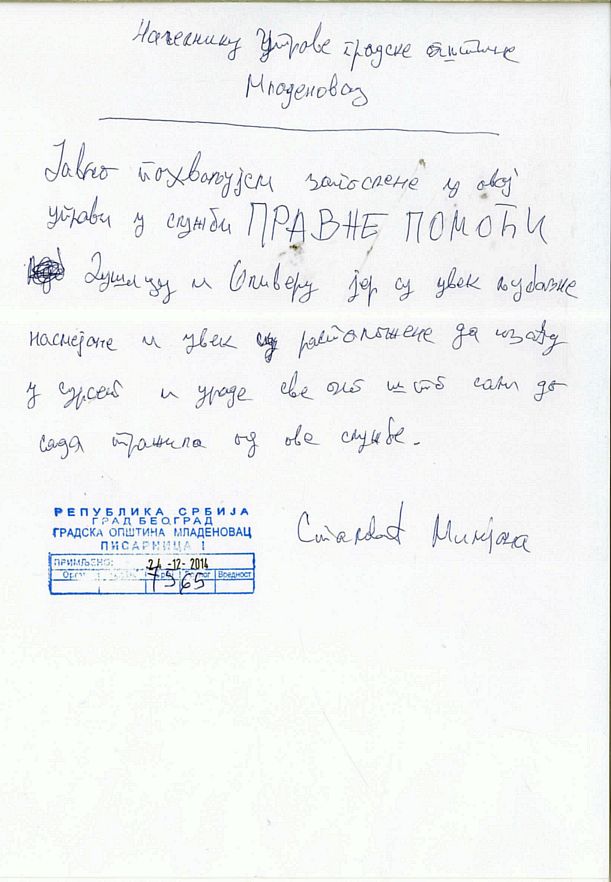 Начелнику Управе градске општине
Младеновац
Јавно похваљујем запослене у овој
управи у служби ПРАВНЕ ПОМОЋИ
Душицу и Оливеру јер су увек љубазне
насмејане и увек расположене да изађу
у сусрет и ураде све оно што сам до
сада тражила од ове службе.
Миљана
РЕПУБЛИКА СРБИЈА
ГРАД БЕОГРАД
ГРАДСКА ОПШТИНА МЛАДЕНОВАЦ
ПИСАРНИЦА 1
ПРИМЉЕНО: 24-12-2014
Вредност
7565